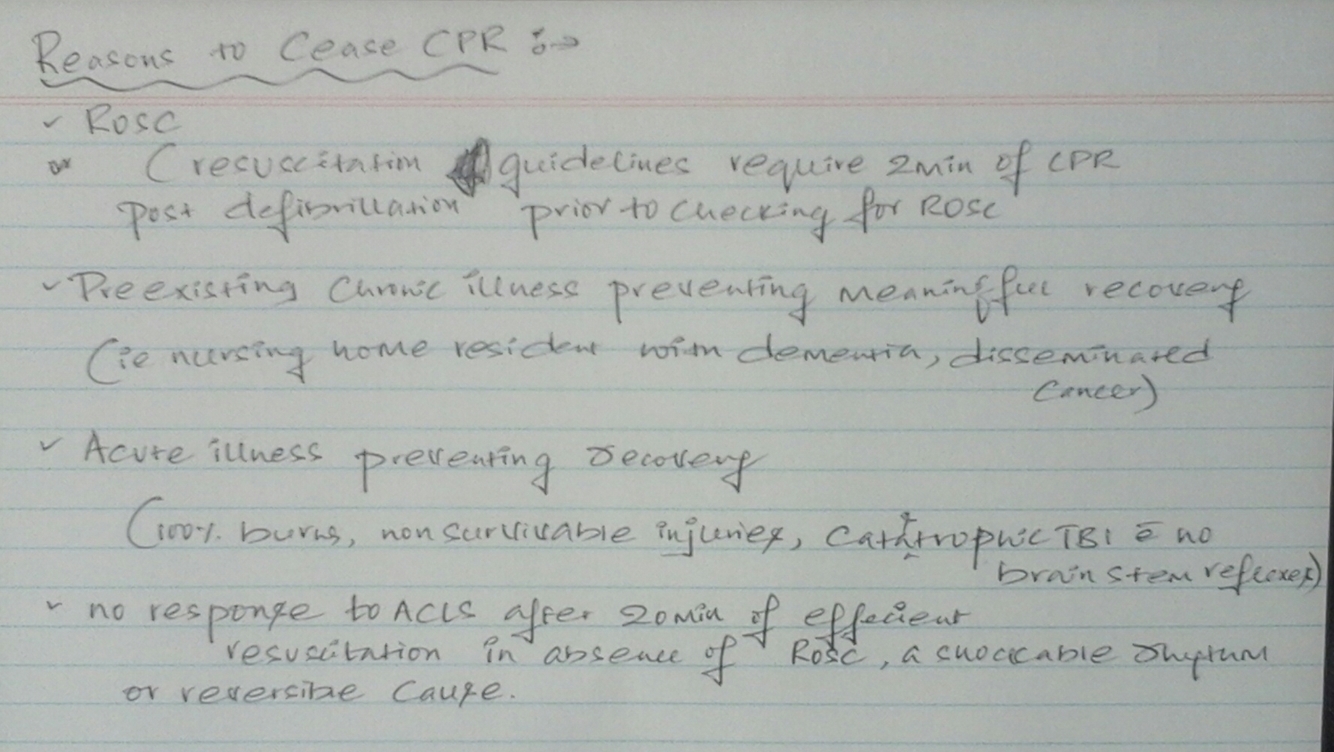 Reasons to Cease CPR :→
✓ ROSC
(resuscitation guidelines require 2min of CPR
post defibrillation prior to checking for ROSC
✓ Preexisting chronic illness preventing meaningful recovery
(ie nursing home resident with dementia, disseminated
cancer)
✓ Acute illness preventing recovery
(100% burns, non survivable injuries, catastrophic TBI c̄ no
brain stem reflexes)
✓ no response to ACLS after 20min of efficient
resuscitation in absence of ROSC, a shockable rhythm
or reversible cause.